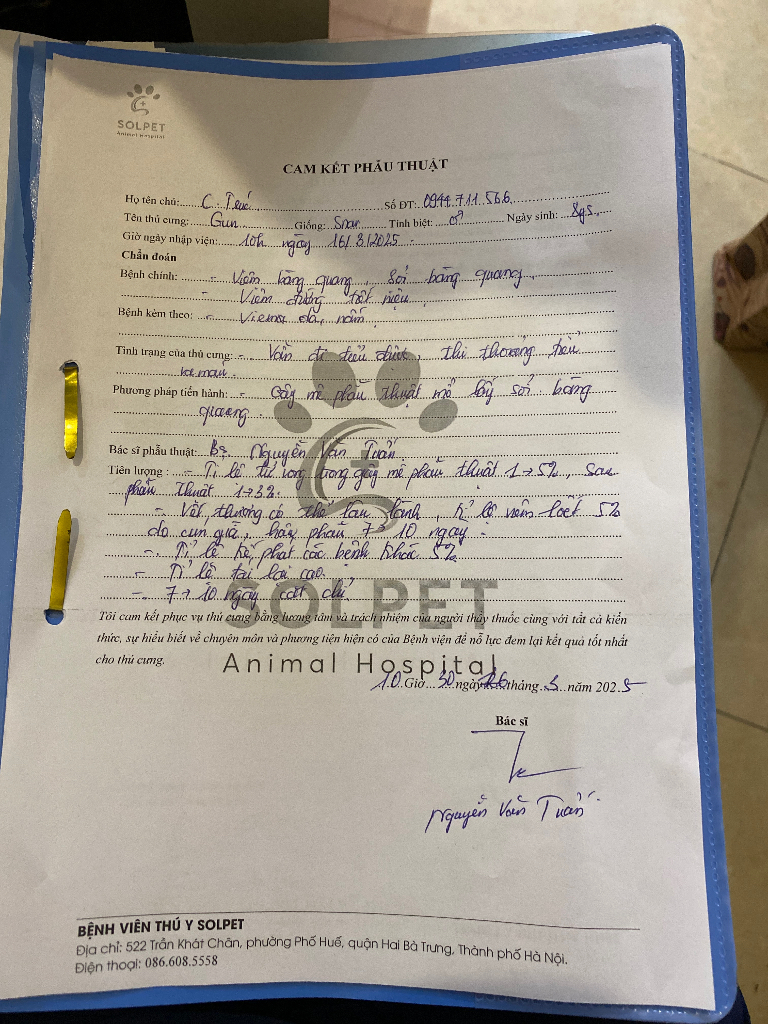 SOLPET
Animal Hospital
CAM KẾT PHẪU THUẬT
Họ tên chủ: C. Số ĐT: 0944.711.566
Tên thú cưng: Gun Giống: Tính biệt: ♂ Ngày sinh:
Giờ ngày nhập viện: 10h ngày 16/3/2025
Chẩn đoán
Bệnh chính: - Viêm bàng quang, sỏi bàng quang,
- Viêm đường tiết niệu
Bệnh kèm theo: - Viêm da, nấm
Tình trạng của thú cưng: - Vẫn đi tiểu được, thi thoảng tiểu
ra máu
Phương pháp tiến hành: - Gây mê phẫu thuật mổ lấy sỏi bàng
quang.
Bác sĩ phẫu thuật: Bs Nguyễn Văn Tuấn
Tiên lượng: - Tỉ lệ tử vong trong gây mê phẫu thuật 1→5%, sau
phẫu thuật 1→3%.
- Vết thương có thể lâu lành, tỉ lệ viêm loét 5%
do cún già, hậu phẫu 7→10 ngày.
- Tỉ lệ kế phát các bệnh khác 5%
- Tỉ lệ tái lại cao.
- 7→10 ngày cắt chỉ
SOLPET
Tôi cam kết phục vụ thú cưng bằng lương tâm và trách nhiệm của người thầy thuốc cùng với tất cả kiến
thức, sự hiểu biết về chuyên môn và phương tiện hiện có của Bệnh viện để nỗ lực đem lại kết quả tốt nhất
cho thú cưng.
Animal Hospital
10 Giờ 30 ngày 16 tháng 3 năm 2025
Bác sĩ
Nguyễn Văn Tuấn
BỆNH VIỆN THÚ Y SOLPET
Địa chỉ: 522 Trần Khát Chân, phường Phố Huế, quận Hai Bà Trưng, Thành phố Hà Nội.
Điện thoại: 086.608.5558